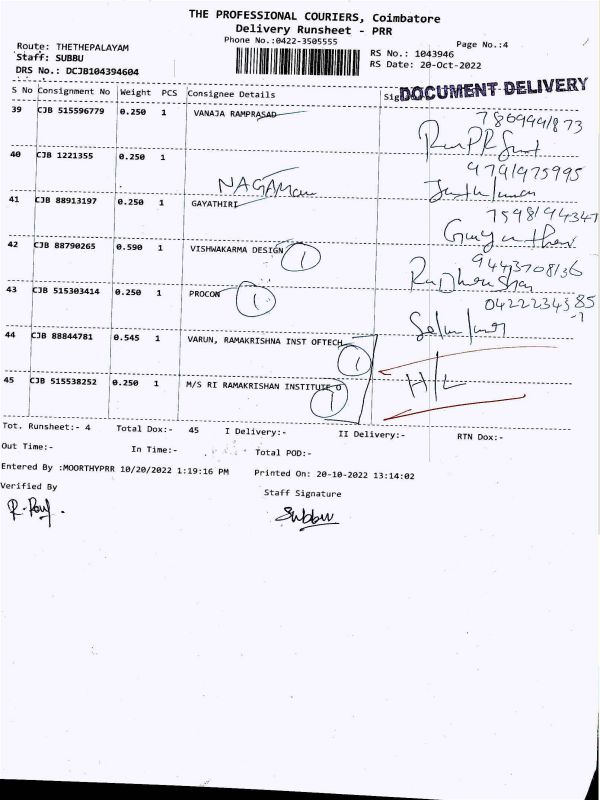 THE PROFESSIONAL COURIERS, Coimbatore
Delivery Runsheet - PRR
Phone No.:0422-3505555
Page No.:4
Route: THETHEPALAYAM
RS No.: 1043946
Staff: SUBBU
RS Date: 20-Oct-2022
DRS No.: DCJB104394604
DOCUMENT DELIVERY
S No Consignment No Weight PCS Consignee Details Sig
39 CJB 515596779 0.250 1 VANAJA RAMPRASAD
40 CJB 1221355 0.250 1
9791975995
41 CJB 88913197 0.250 1 GAYATHIRI
42 CJB 88790265 0.590 1 VISHWAKARMA DESIGN 1
9443708136
43 CJB 515303414 0.250 1 PROCON 1
04222234385
44 CJB 88844781 0.545 1 VARUN, RAMAKRISHNA INST OFTECH 1
H/L
45 CJB 515538252 0.250 1 M/S RI RAMAKRISHAN INSTITUTE O 1
Tot. Runsheet:- 4 Total Dox:- 45 I Delivery:- II Delivery:- RTN Dox:-
Out Time:- In Time:- Total POD:-
Entered By :MOORTHYPRR 10/20/2022 1:19:16 PM Printed On: 20-10-2022 13:14:02
Verified By Staff Signature
Subbu